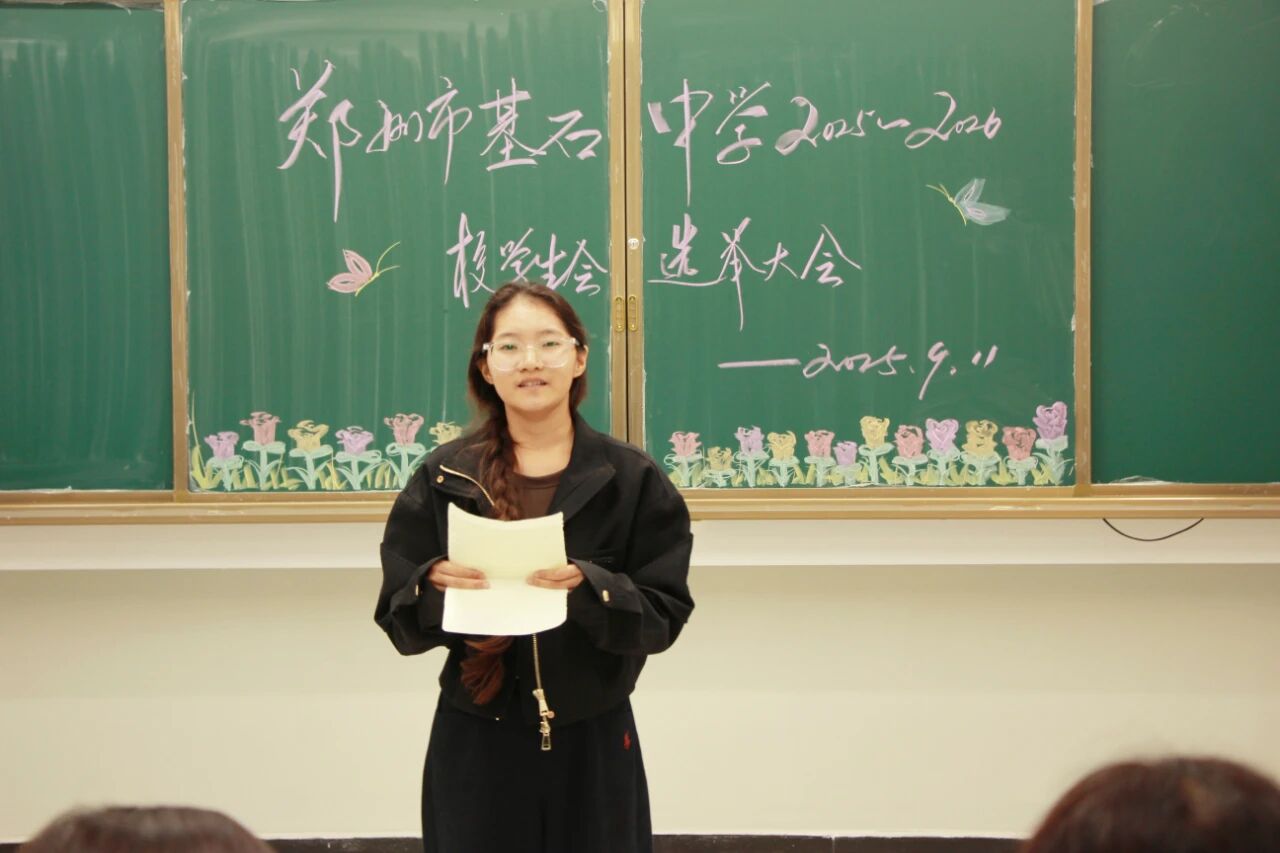 郑州市基石中学2025-2026
校学生会选举大会
——2025.9.11